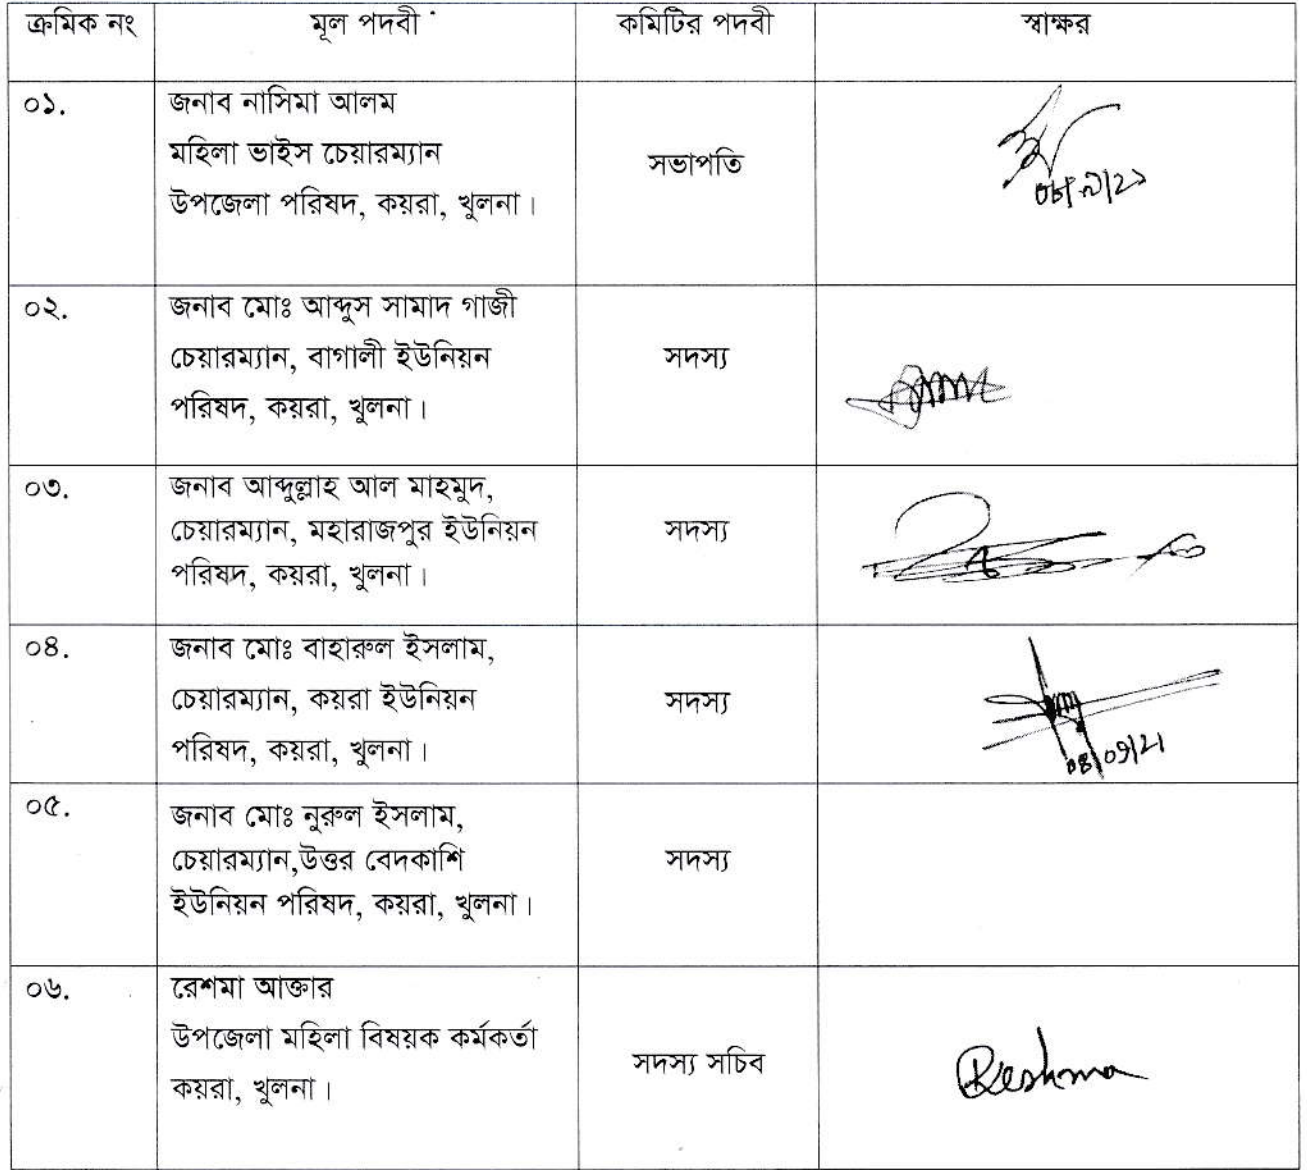 ক্রমিক নং মূল পদবী কমিটির পদবী স্বাক্ষর
০১. জনাব নাসিমা আলম
মহিলা ভাইস চেয়ারম্যান
উপজেলা পরিষদ, কয়রা, খুলনা।
সভাপতি
০২. জনাব মোঃ আব্দুস সামাদ গাজী
চেয়ারম্যান, বাগালী ইউনিয়ন
পরিষদ, কয়রা, খুলনা।
সদস্য
০৩. জনাব আব্দুল্লাহ আল মাহমুদ,
চেয়ারম্যান, মহারাজপুর ইউনিয়ন
পরিষদ, কয়রা, খুলনা।
সদস্য
০৪. জনাব মোঃ বাহারুল ইসলাম,
চেয়ারম্যান, কয়রা ইউনিয়ন
পরিষদ, কয়রা, খুলনা।
সদস্য
08/09/21
০৫. জনাব মোঃ নুরুল ইসলাম,
চেয়ারম্যান,উত্তর বেদকাশি
ইউনিয়ন পরিষদ, কয়রা, খুলনা।
সদস্য
০৬. রেশমা আক্তার
উপজেলা মহিলা বিষয়ক কর্মকর্তা
কয়রা, খুলনা।
সদস্য সচিব
Reshma